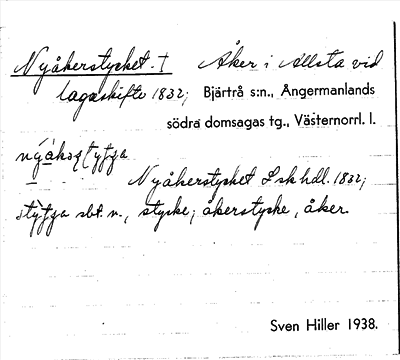 Nyåkerstycket. † Åker i Allsta vid
lagaskifte 1832; Bjärtrå s:n., Ångermanlands
södra domsagas tg., Västernorrl. l.
Nyåkerstycket Lskhdl. 1832;
sbt. n., stycke; åkerstycke, åker.
Sven Hiller 1938.